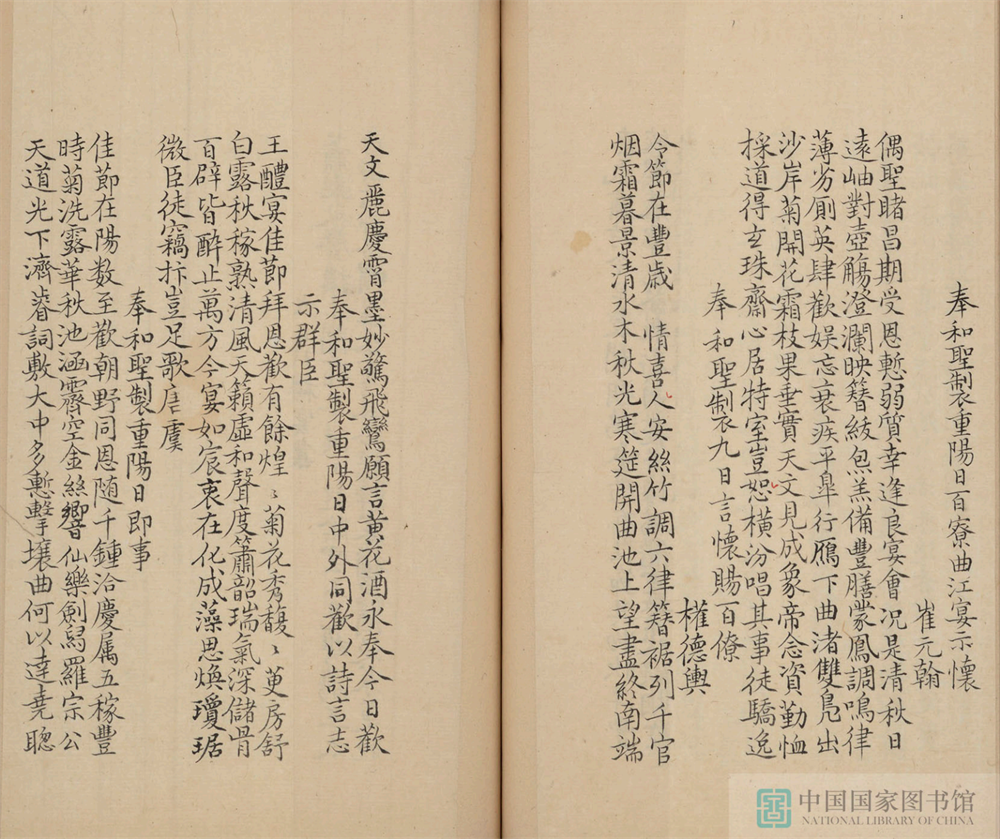 奉和聖製重陽日百寮曲江宴示懷
崔元翰
偶聖睹昌期受恩慙弱質幸逢良宴會况是清秋日
遠岫對壺觴澄瀾映簪紱炰羔備豐膳蒙鳳調鳴律
薄劣厠英肆歡娱忘衰疾平皐行鴈下曲渚雙鳬出
沙岸菊開花霜枝果垂實天文見成象帝念資勤恤
採道得玄珠齋心居特室豈恕横汾唱其事徒驕逸
奉和聖製九日言懷賜百僚
權德輿
令節在豐歲 情喜人安絲竹調六律簪裾列千官
烟霜暮景清水木秋光寒筵開曲池上望盡終南端
天文麗慶霄墨妙驚飛鸞願言黄花酒永奉今日歡
奉和聖製重陽日中外同歡以詩言志
示群臣
王醴宴佳節拜恩歡有餘煌〻菊花秀馥〻萸房舒
白露秋稼熟清風天籟虛和聲度簫韶瑞氣深儲胥
百辟皆醉止萬方今宴如宸衷在化成藻思煥瓊琚
微臣徒竊抃豈足歌唐虞
奉和聖製重陽日即事
佳節在陽数至歡朝野同恩随千鍾洽慶属五稼豐
時菊洗露華秋池涵霽空金絲響仙樂劍舄羅宗公
天道光下濟睿詞敷大中多慙擊壤曲何以達堯聰
中国国家图书馆
NATIONAL LIBRARY OF CHINA